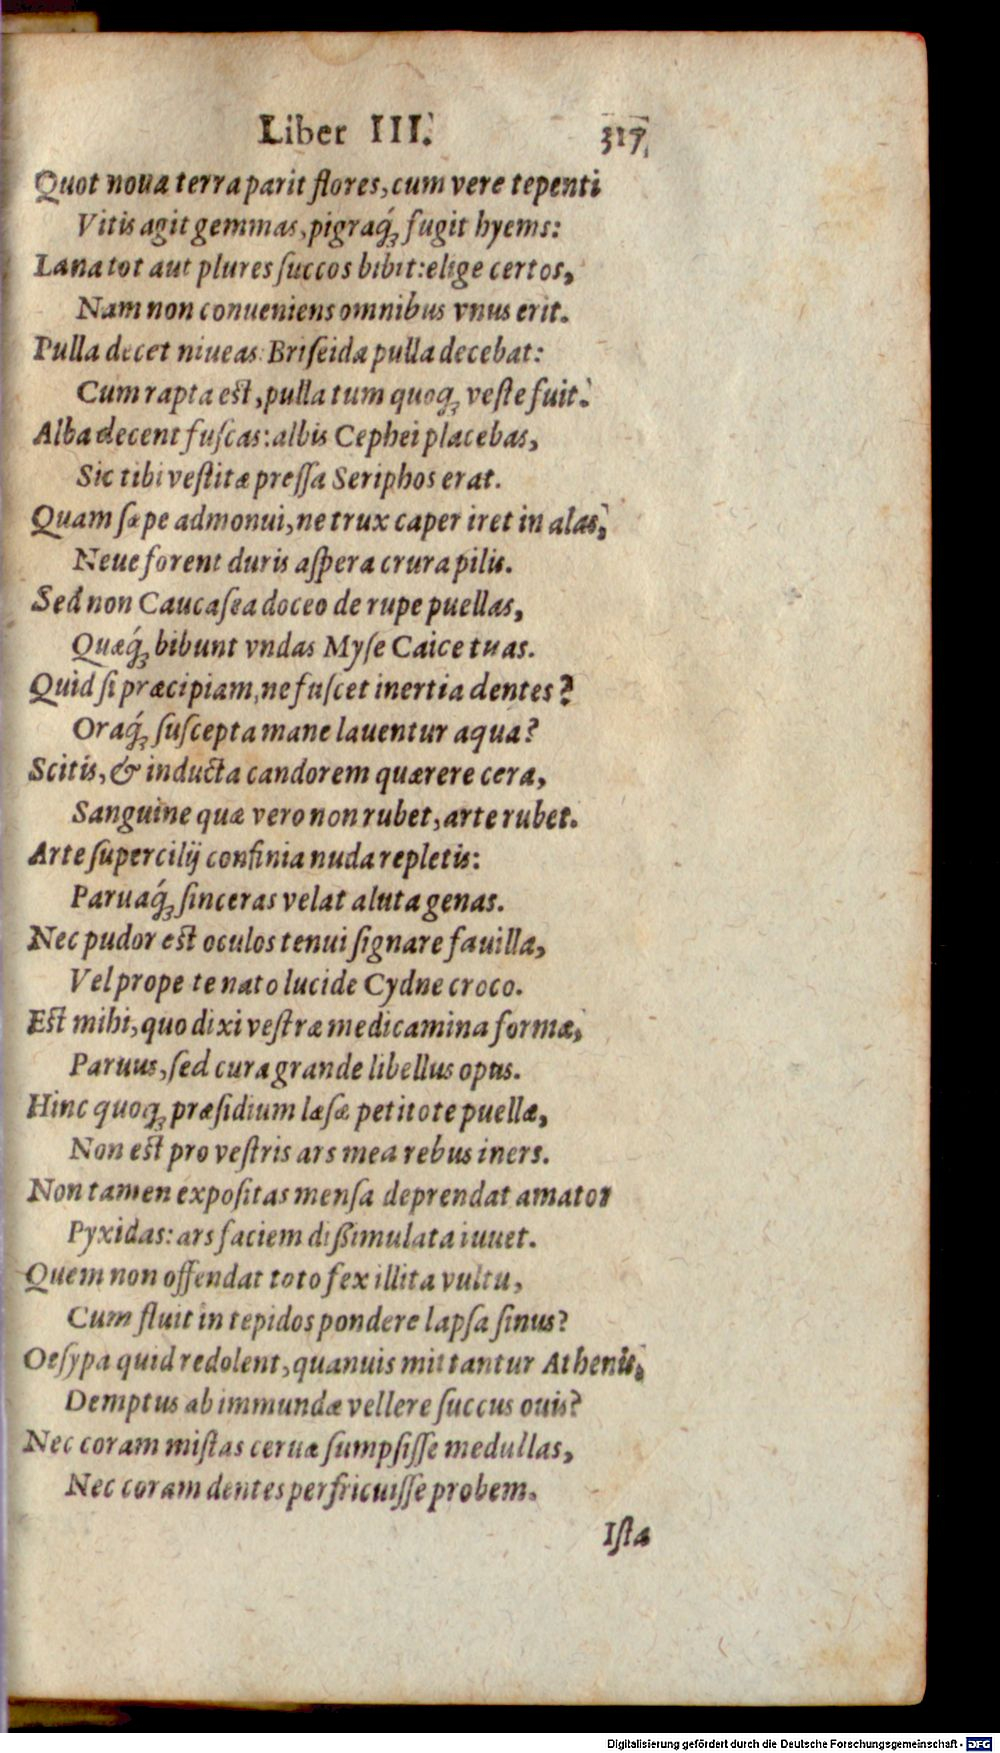 Liber III. 317
Quot noua terra parit flores, cum vere tepenti
Vitis agit gemmas, pigraq́ꝫ fugit hyems:
Lana tot aut plures ſuccos bibit: elige certos,
Nam non conueniens omnibus vnus erit.
Pulla decet niueas: Briſeida pulla decebat:
Cum rapta est, pulla tum quoqꝫ veſte fuit.
Alba decent fuſcas: albis Cephei placebas,
Sic tibi veſtitæ preſſa Seriphos erat.
Quam ſæpe admonui, ne trux caper iret in alas,
Neue forent duris aſpera crura pilis.
Sed non Caucaſea doceo de rupe puellas,
Quæq́ꝫ bibunt vndas Myſe Caice tuas.
Quid ſi præcipiam, ne fuſcet inertia dentes?
Oraq́ꝫ ſuſcepta mane lauentur aqua?
Scitis, & inducta candorem quærere cera,
Sanguine quæ vero non rubet, arte rubet.
Arte ſupercilij confinia nuda repletis:
Paruaq́ꝫ ſinceras velat aluta genas.
Nec pudor est oculos tenui ſignare fauilla,
Vel prope te nato lucide Cydne croco.
Est mihi, quo dixi veſtræ medicamina formæ,
Paruus, ſed cura grande libellus opus.
Hinc quoqꝫ præſidium læſæ petitote puellæ,
Non est pro veſtris ars mea rebus iners.
Non tamen expoſitas menſa deprendat amator
Pyxidas: ars faciem diſsimulata iuuet.
Quem non offendat toto fex illita vultu,
Cum fluit in tepidos pondere lapſa ſinus?
Oeſypa quid redolent, quanuis mittantur Athenis,
Demptus ab immundæ vellere ſuccus ouis?
Nec coram miſtas ceruæ ſumpſiſſe medullas,
Nec coram dentes perfricuiſſe probem.
Iſta
Digitalisierung gefördert durch die Deutsche Forschungsgemeinschaft - DFG